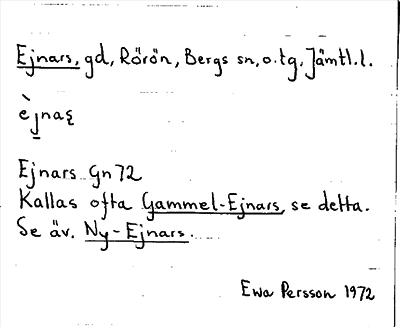 Ejnars, gd, Rörön, Bergs sn, o. tg, Jämtl. l.
èj̲naꞩ
Ejnars Gn 72
Kallas ofta Gammel-Ejnars, se detta.
Se äv. Ny-Ejnars.
Ewa Persson 1972